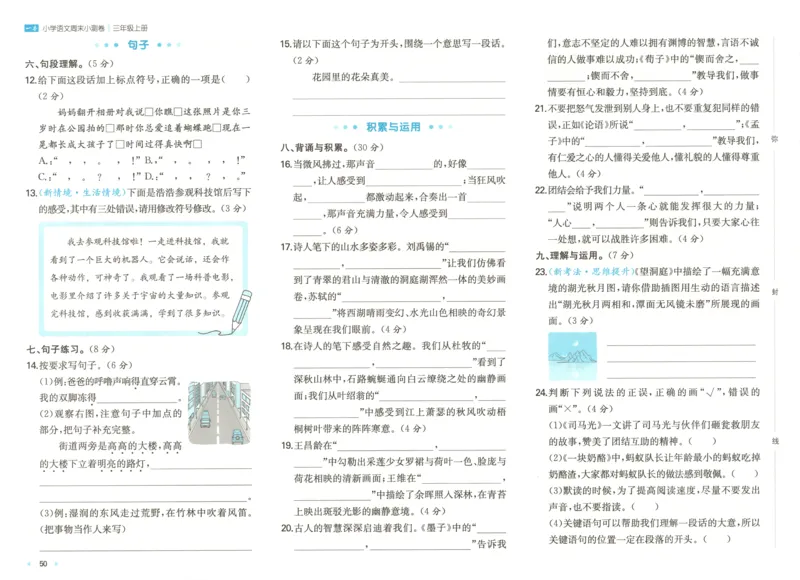 小学语文周末小测卷 三年级上册
句子
六、句段理解。(5 分)
12.给下面这段话加上标点符号,正确的一项是(  )
(2 分)
妈妈翻开相册对我说□你□□这张照片是你三
岁时在公园拍的□那时你总爱追着蝴蝶跑□现在一
晃都长成大孩子了□□时间过得真快啊□
A.:“ , 。 , !” B.,“ , 。 , !”
C.:“ , , ? , !” D.:“ , , ? , 。”
13.(新情境·生活情境)下面是浩浩参观科技馆后写下
的感受,其中有三处错误,请用修改符号修改。(3 分)
我去参观科技馆啦!一走进科技馆,我就
看到了一个巨大的机器人。它会说话,还会作
各种动作,可神奇了。我观看了一场科普电影,
电影里介绍了许多关于宇宙的大量知识。参观
完科技馆,感到收获满满,学到了很多知识。
七、句子练习。(8 分)
14.按要求写句子。(6 分)
(1)例:爸爸的呼噜声响得直穿云霄。
我的双脚冻得____________。
(2)观察右图,注意句子中加点的
部分,把句子补充完整。
街道两旁是高高的大楼,高高
的大楼下立着明亮的路灯,____________
____________
____________。
(3)例:湿润的东风走过荒野,在竹林中吹着风笛。
(把事物当作人来写)
____________
50
15.请以下面这个句子为开头,围绕一个意思写一段话。
(2 分)
花园里的花朵真美。____________
____________
____________
积累与运用
八、背诵与积累。(30 分)
16.当微风拂过,那声音________的,好像________
____,让人感受到____________;当狂风吹
起,________都激动起来,合奏出一首________
____,那声音充满力量,令人感受到________
____。(6 分)
17.诗人笔下的山水多姿多彩。刘禹锡的“________
________,____________”让我们仿佛看
到了青翠的君山与清澈的洞庭湖浑然一体的美妙画
卷,苏轼的“____________,____________
________”将西湖晴雨变幻、水光山色相映的奇幻景
象呈现在我们眼前。(4 分)
18.在诗人的笔下感受自然之趣。我们从杜牧的“____
____________,____________”看到了
深秋山林中,石路蜿蜒通向白云缭绕之处的幽静画
面;我们从叶绍翁的“____________,________
____________”中感受到江上萧瑟的秋风吹动梧
桐树叶带来的阵阵寒意。(4 分)
19.王昌龄在“____________,____________
____”中勾勒出采莲少女罗裙与荷叶一色、脸庞与
荷花相映的清新画面;王维在“____________,
____________”中描绘了余晖照入深林,在青苔
上映出斑驳光影的幽静意境。(4 分)
20.古人的智慧深深启迪着我们。《墨子》中的“____
____________,____________”告诉我
们,意志不坚定的人难以拥有渊博的智慧,言语不诚
信的人做事难以成功;《荀子》中的“锲而舍之,____
____;锲而不舍,________”教导我们,做事
情要有恒心和毅力,坚持到底。(4 分)
21.不要把怒气发泄到别人身上,也不要重复犯同样的错
误,正如《论语》所说“________,________”;《孟
子》中的“____________,____________”教导我们,
有仁爱之心的人懂得关爱他人,懂礼貌的人懂得尊重
他人。(4 分)
22.团结会给予我们力量。“____________,________
____”说明两个人一条心就能发挥很大的力量;
“人心____,____________”则告诉我们,只要大家心往
一处想,就可以战胜许多困难。(4 分)
九、理解与运用。(7 分)
23.(新考法·思维提升)《望洞庭》中描绘了一幅充满意
境的湖光秋月图,请你借助插图用生动的语言描述
出“湖光秋月两相和,潭面无风镜未磨”所展现的画
面。(3 分)
____________
____________
____________
24.判断下列说法的正误,正确的画“√”,错误的
画“×”。(4 分)
(1)《司马光》一文讲了司马光与伙伴们砸瓮救朋友
的故事,赞美了团结互助的精神。(  )
(2)《一块奶酪》中,蚂蚁队长让年龄最小的蚂蚁吃掉
奶酪渣,大家都对蚂蚁队长的做法感到敬佩。(  )
(3)默读的时候,为了提高阅读速度,尽量不要发出
声音,也不要指读。(  )
(4)关键语句可以帮助我们理解一段话的大意,所以
关键语句的位置一定在段落的开头。(  )
弥
封
线